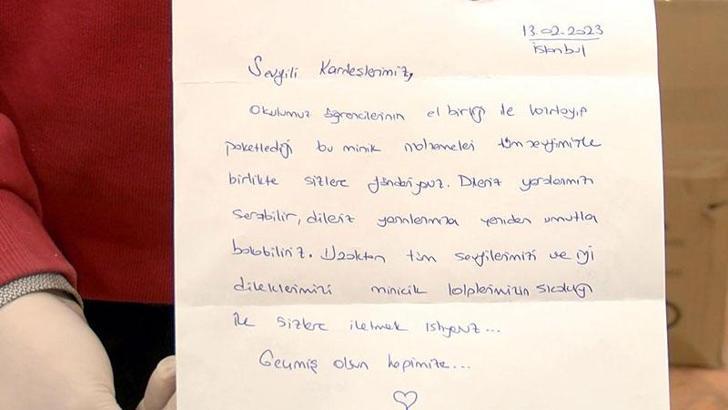 13.02.2023
İstanbul
Sevgili Kardeşlerimiz,
Okulumuz öğrencilerinin el birliği ile toplayıp
paketlediği bu minik malzemeleri tüm sevgimizle
birlikte sizlere gönderiyoruz. Dileriz yaralarımızı
sarabilir, dileriz yarınlarımıza yeniden umutla
bakabiliriz. Uzaktan tüm sevgilerimizi ve iyi
dileklerimizi minicik kalplerimizin sıcaklığı
ile sizlere iletmek istiyoruz...
Geçmiş olsun hepimize...